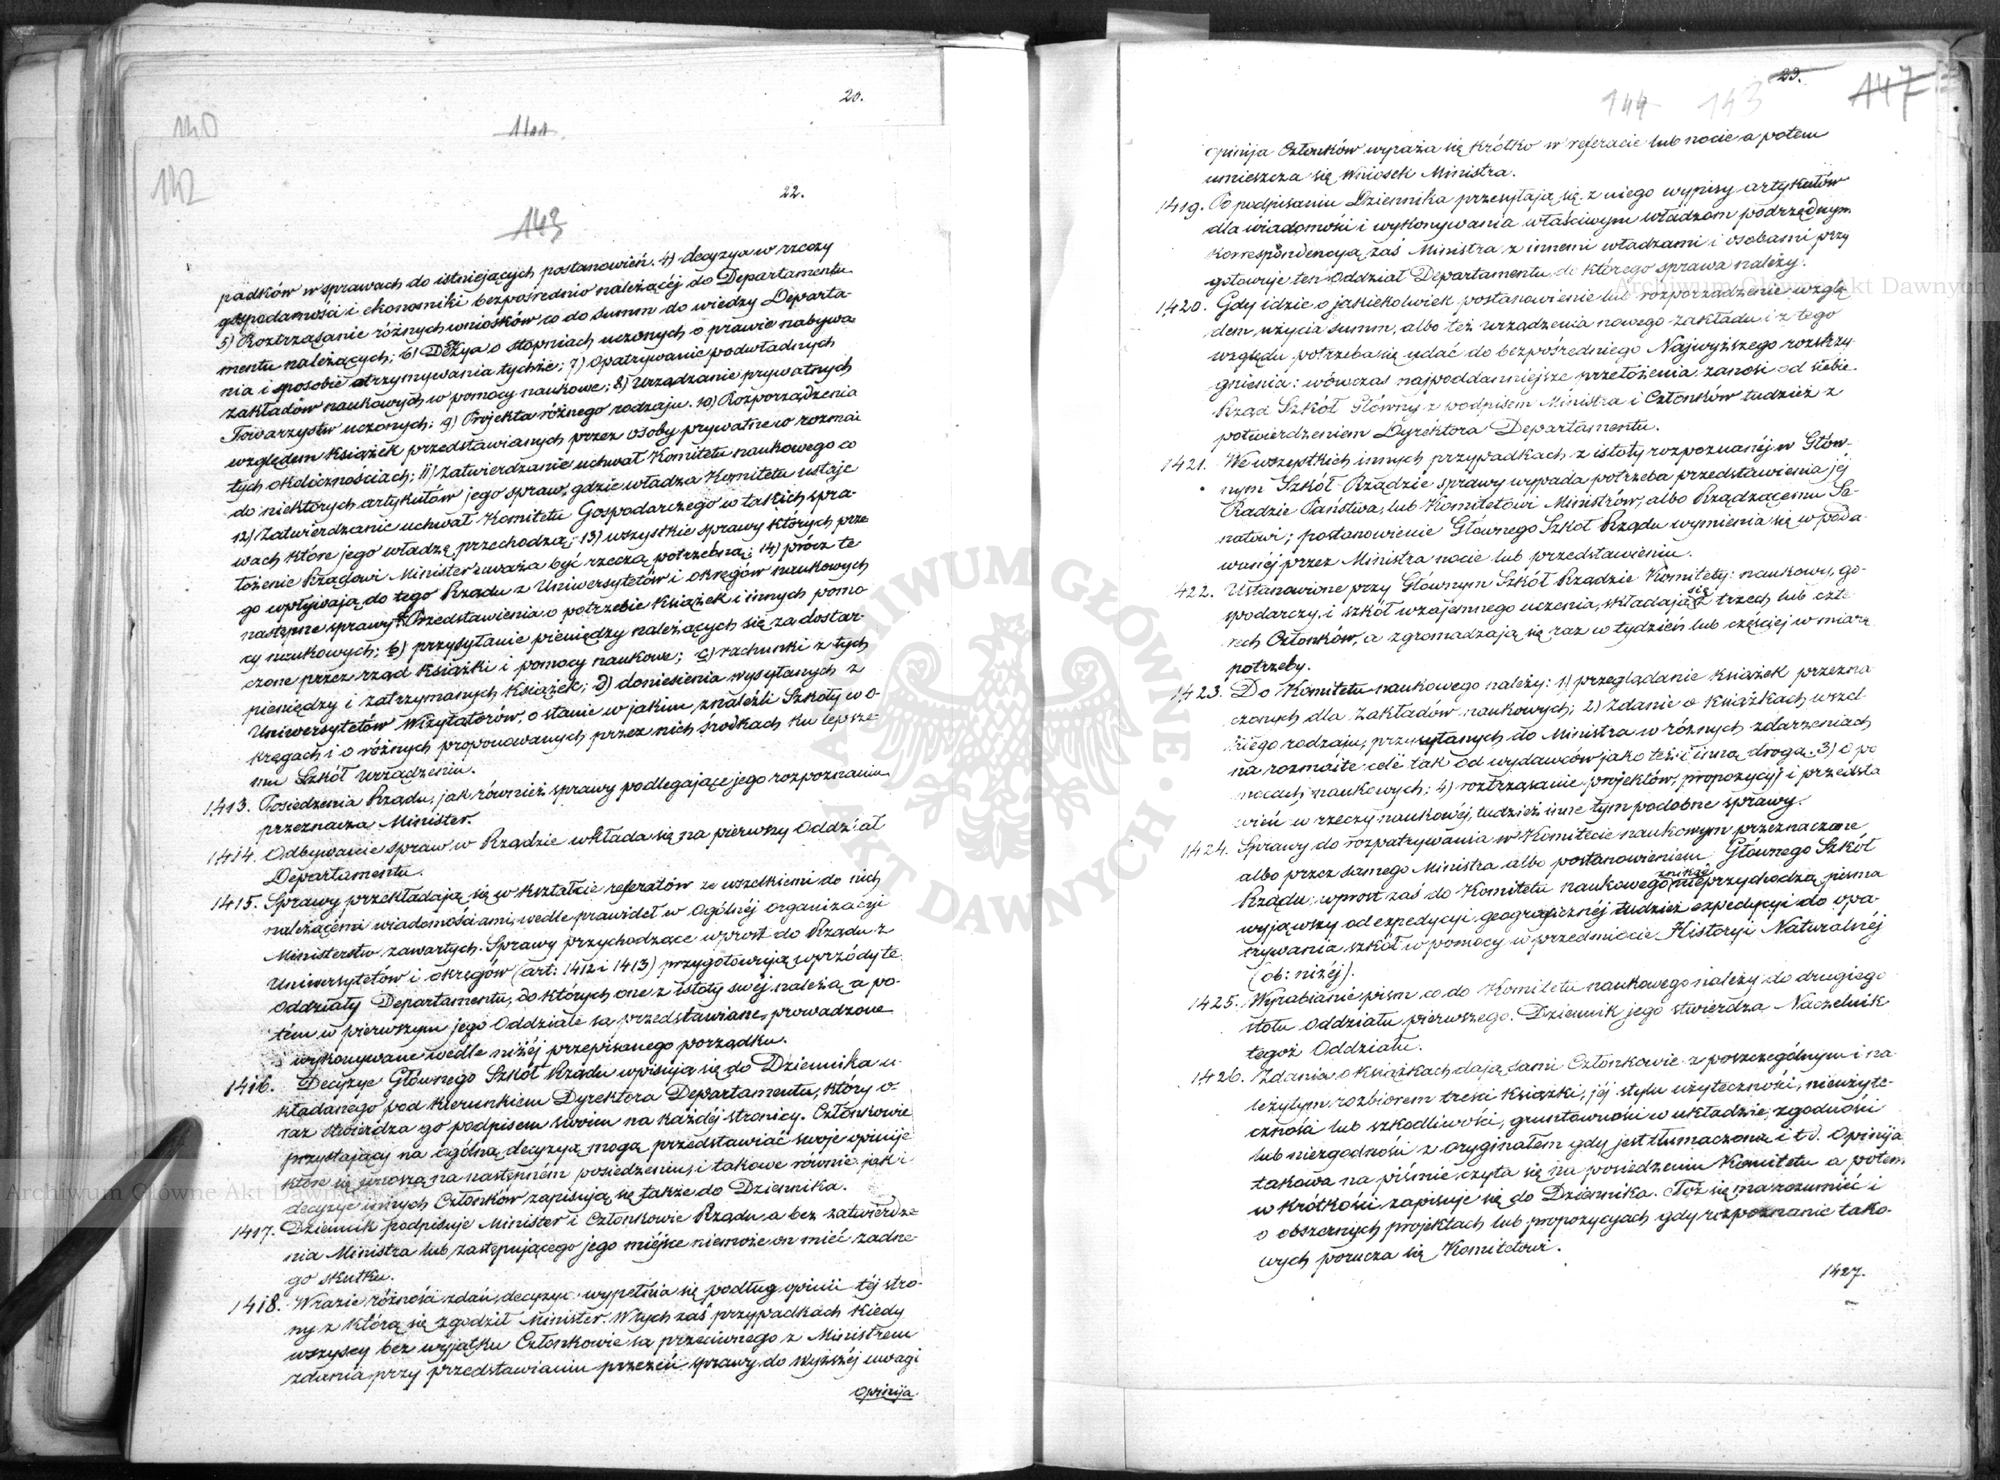 20.
140
141
142
22.
143
padków w sprawach do istniejących postanowień. 4) decyzya w rzeczy
gospodarności i ekonomiki bezpośrednio należącéj do Departamentu
5) Roztrząsanie różnych wniosków co do summ do wiedzy Departa-
mentu należących; 6) Decyzya o stopniach uczonych o prawie nabywa
nia i sposobie otrzymywania tychże; 7) Opatrywanie podwładnych
zakładów naukowych w pomocy naukowe; 8) Urządzanie prywatnych
Towarzystw uczonych; 9) Projekta różnego rodzaju. 10) Rozporządzenia
względem Książek przedstawianych przez osoby prywatne w rozmai
tych okolicznościach; 11) Zatwierdzanie uchwał Komitetu naukowego co
do niektórych artykułów jego spraw, gdzie władza Komitetu ustaje
12) Zatwierdzanie uchwał Komitetu Gospodarczego w takich spra-
wach które jego władzę przechodzą; 13) wszystkie sprawy których prze
łożenie Rządowi Minister uważa być rzeczą potrzebną; 14) prócz te
go wpływają do tego Rządu z Uniwersytetów i okręgów naukowych
następne sprawy: a) Przedstawienia o potrzebie Książek i innych pomo
cy naukowych; b) przysyłanie pieniędzy należących się za dostar-
czone przez rząd Książki i pomocy naukowe; c) rachunki z tych
pieniędzy i zatrzymanych Książek; d) doniesienia wysyłanych z
Uniwersytetów Wizytatorów, o stanie w jakim znaleźli Szkoły w o-
kręgach i o różnych proponowanych przez nich środkach ku lepsze-
mu Szkół urządzeniu.
1413. Posiedzenia Rządu, jak również sprawy podlegające jego rozpoznaniu
przeznacza Minister.
1414. Odbywanie spraw w Rządzie wkłada się na pierwszy Oddział
Departamentu.
1415. Sprawy przekładają się w kształcie referatów ze wszelkiemi do nich
należącemi wiadomościami, wedle prawideł w Ogólnéj organizacyi
Ministerstw zawartych. Sprawy przychodzące wprost do Rządu z
Uniwersytetów i okręgów (art: 1412 i 1413) przygotowują wprzódy te
Oddziały Departamentu, do których one z istoty swéj należą a po-
tém w pierwszym jego Oddziale są przedstawiane, prowadzone
i wykonywane wedle niżéj przepisanego porządku.
1416. Decyzye Głównego Szkół Rządu wpisują się do Dziennika u-
kładanego pod kierunkiem Dyrektora Departamentu, który o-
raz stwierdza go podpisem swoim na każdéj stronicy. Członkowie
przystający na ogólną decyzyą mogą przedstawiać swoje opinije
które się wnoszą na następném posiedzeniu, i takowe równie jak i
decyzye innych Członków zapisują się także do Dziennika.
1417. Dziennik podpisuje Minister i Członkowie Rządu a bez zatwierdze-
nia Ministra lub zastępującego jego miejsce niemoże on mieć żadne-
go skutku.
1418. W razie różności zdań, decyzye wypełnia się podług opinii téj stro-
ny z którą się zgodził Minister. W tych zaś przypadkach kiedy
wszyscy bez wyjątku Członkowie są przeciwnego z Ministrem
zdania, przy przedstawianiu przezeń sprawy do wyższéj uwagi
opinija
23.
144 143 147
opinija Członków wyraża się krótko w referacie lub nocie a potem
umieszcza się Wniosek Ministra.
1419. Po podpisaniu Dziennika przesyłają się z niego wypisy artykułów
dla wiadomości i wykonywania właściwym władzom podrzędnym
Korrespondencyą zaś Ministra z innemi władzami i osobami przy
gotowuje ten Oddział Departamentu do którego sprawa należy.
1420. Gdy idzie o jakiekolwiek postanowienie lub rozporządzenie wzglę
dem użycia summ, albo też urządzenia nowego zakładu i z tego
względu potrzeba się udać do bezpośredniego Najwyższego rozstrzy
gnienia: wówczas najpoddanniejsze przełożenia zanosi od siebie
Rząd Szkół Główny z podpisem Ministra i Członków tudzież z
potwierdzeniem Dyrektora Departamentu.
1421. We wszystkich innych przypadkach z istoty rozpoznanéj w Głów-
nym Szkół Rządzie sprawy wypada potrzeba przedstawienia jéj
Radzie Państwa, lub Komitetowi Ministrów, albo Rządzącemu Se-
natowi; postanowienie Głównego Szkół Rządu wymienia się w poda-
wanéj przez Ministra nocie lub przedstawieniu.
422. Ustanowione przy Głównym Szkół Rządzie Komitety: naukowy, go-
spodarczy, i szkół wzajemnego uczenia, składają się z trzech lub czte-
rech Członków, a zgromadzają się raz w tydzień lub częściej w miarę
potrzeby.
1423. Do Komitetu naukowego należy: 1) przeglądanie książek przezna
czonych dla Zakładów naukowych; 2) Zdanie o książkach wszel
kiego rodzaju, przysyłanych do Ministra w różnych zdarzeniach
na rozmaite cele tak od wydawców jako też i inną drogą. 3) o po
mocach naukowych; 4) roztrząsanie projektów, propozycyj i przedsta
wień w rzeczy naukowéj, tudzież inne tym podobne sprawy.
1424. Sprawy do rozpatrywania w Komitecie naukowym przeznaczone
albo przez samego Ministra albo postanowieniem Głównego Szkół
Rządu; wprost zaś do Komitetu naukowego nieprzychodzą pisma
wyjąwszy od expedycyi geograficznéj tudzież expedycyi do opa-
trywania szkół w pomocy w przedmiocie Historyi Naturalnéj
(ob: niżéj).
1425. Wyrabianie pism co do Komitetu naukowego należy do drugiego
stołu Oddziału pierwszego. Dziennik jego stwierdza Naczelnik
tegoż Oddziału.
1426. Zdania o książkach dają sami Członkowie z poszczególnym i na
leżytym rozbiorem treści książki, jéj stylu użyteczności, nieużyte-
czności lub szkodliwości, gruntowności w układzie, zgodności
lub niezgodności z oryginałem gdy jest tłumaczona i t.d. Opinija
takowa na piśmie czyta się na posiedzeniu Komitetu a potem
w krótkości zapisuje się do Dziennika. Toż się ma rozumieć i
o obszernych projektach lub propozycyach gdy rozpoznanie tako-
wych porucza się Komitetowi.
1427.
Archiwum Główne Akt Dawnych
Archiwum Główne Akt Dawnych
ARCHIWUM GŁÓWNE AKT DAWNYCH